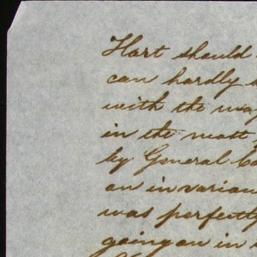 Hart should
can hardly
with the way
in the most
by General
an invarian
was perfectly
going on in